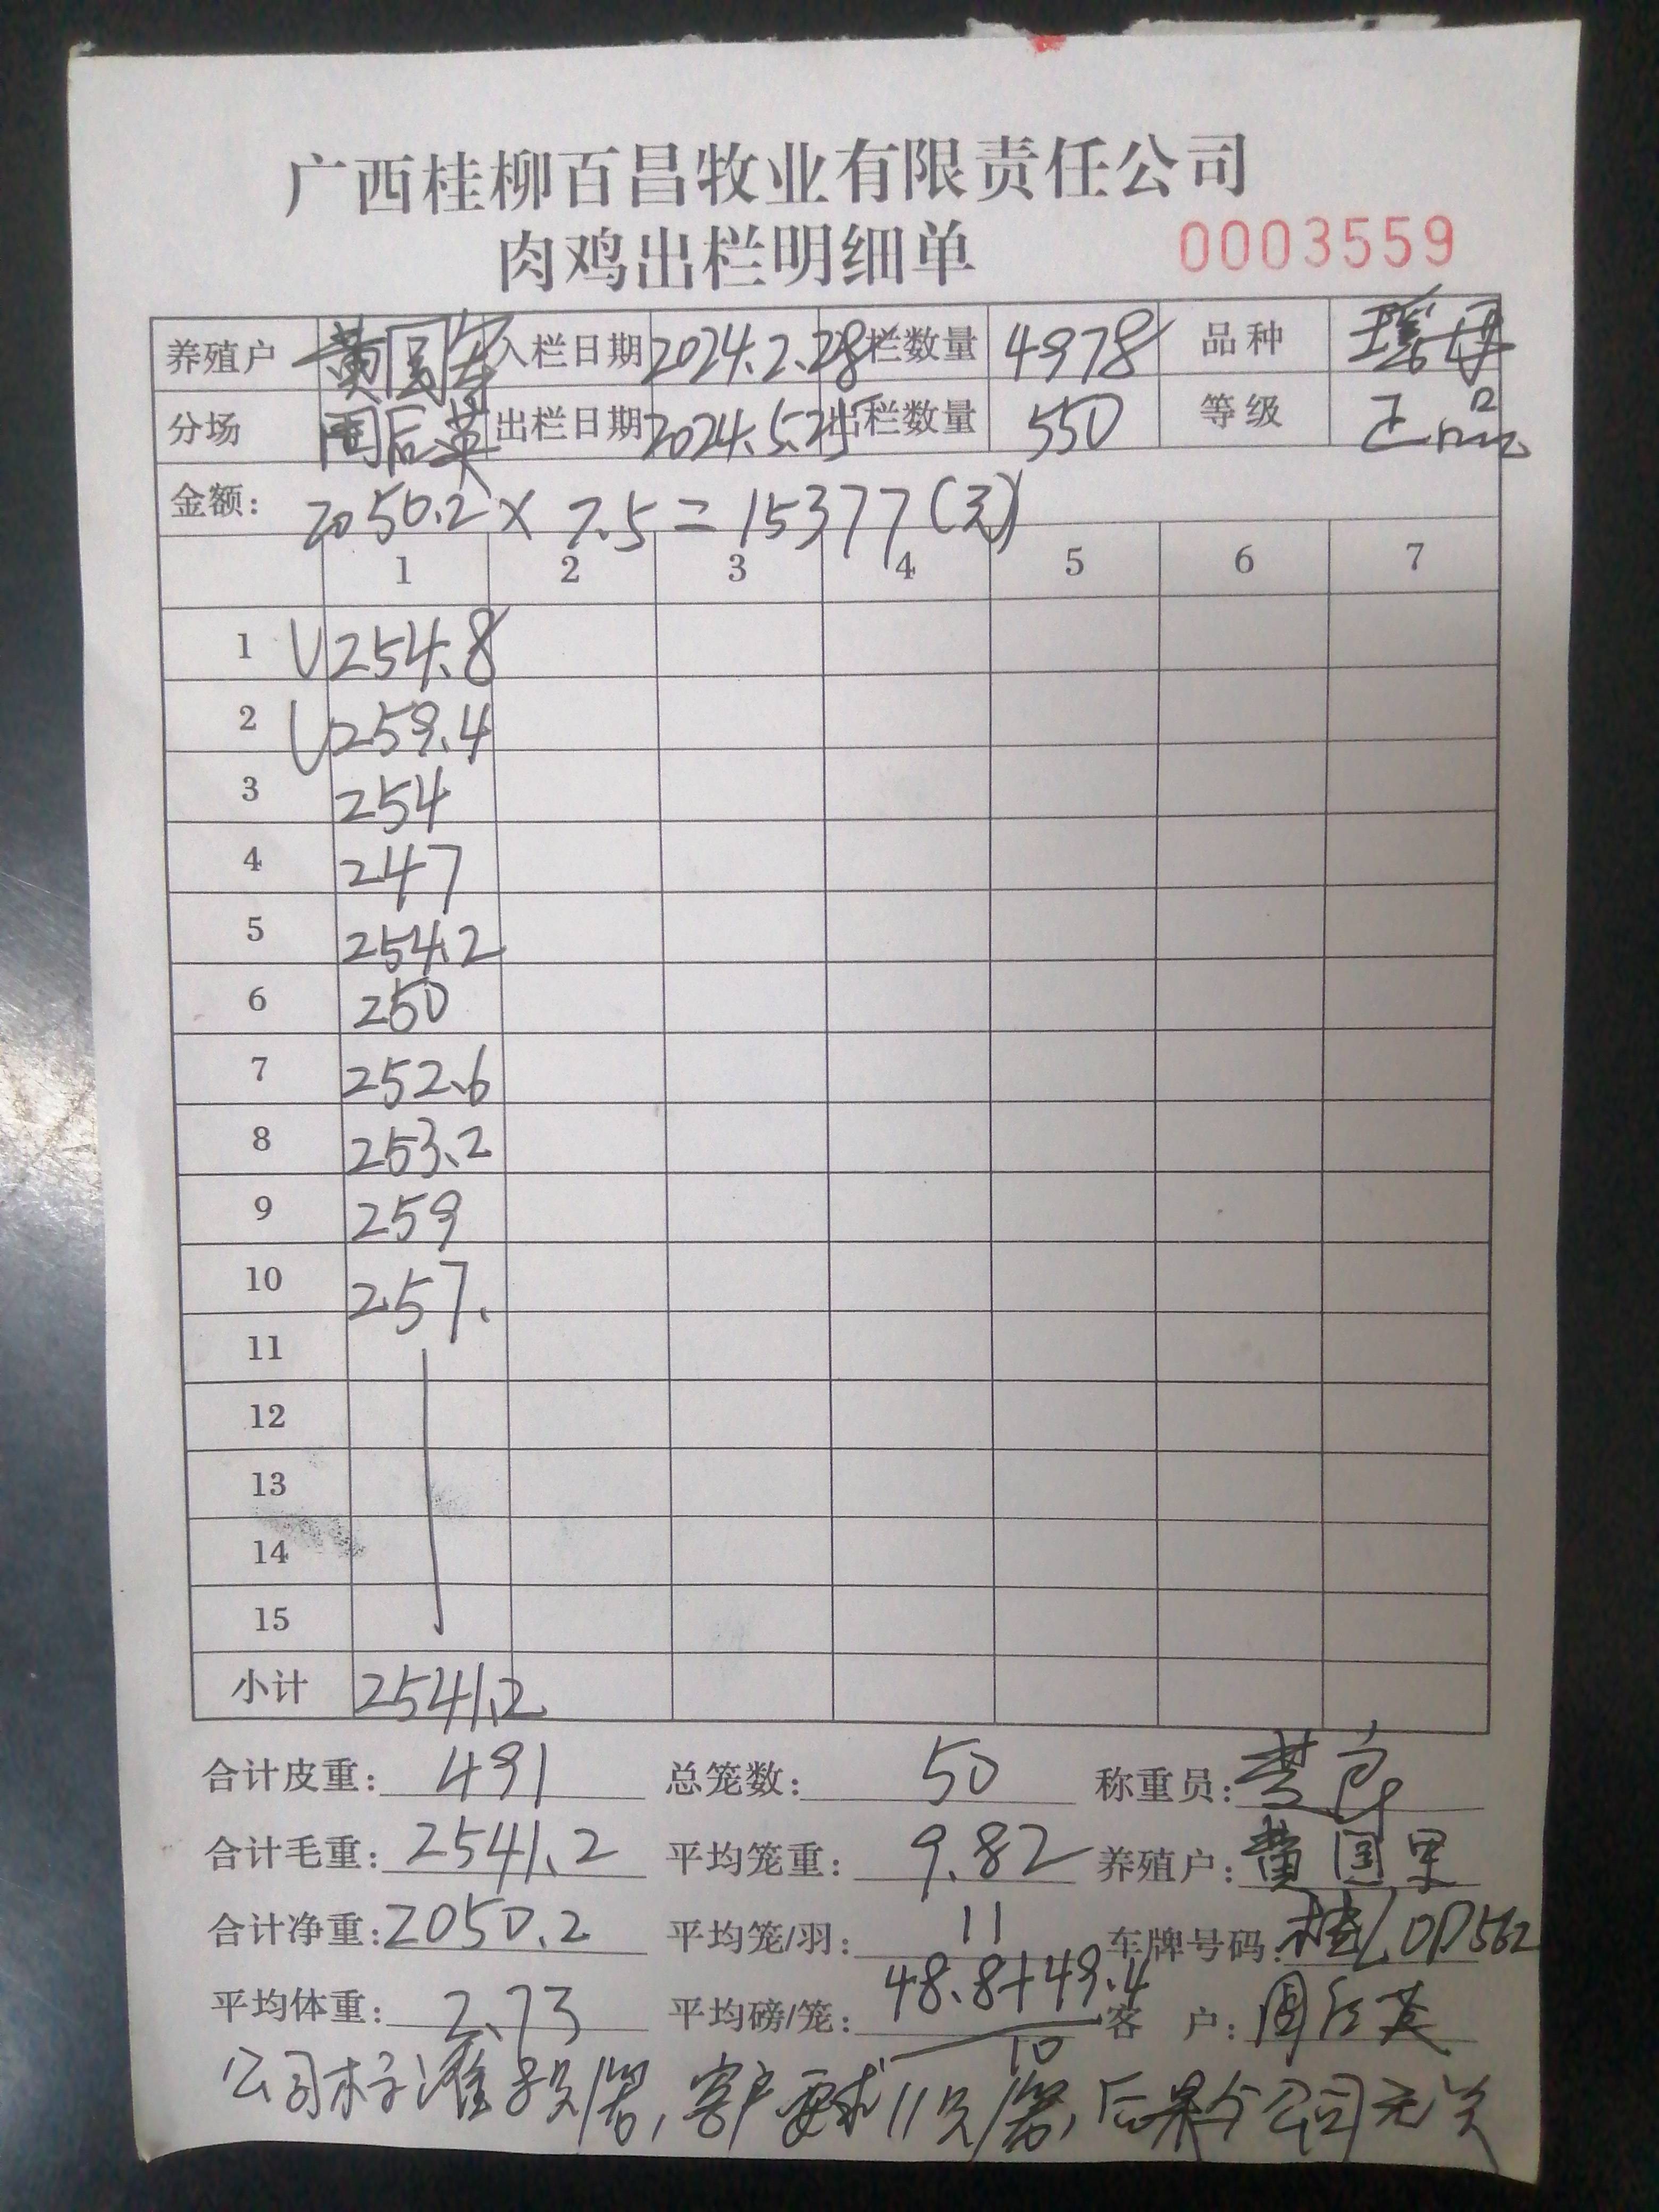 广西桂柳百昌牧业有限责任公司
肉鸡出栏明细单 0003559
养殖户 黄国 入栏日期 2024.2.28 栏数量 4978 品种 瑶
分场 周后英 出栏日期 2024.5.25 出栏数量 550 等级 正品
金额: 2050.2 × 7.5 = 15377(元)
1 2 3 4 5 6 7
1 254.8
2 259.4
3 254
4 247
5 254.2
6 250
7 252.6
8 253.2
9 259
10 257.
11
12
13
14
15
小计 2541.2
合计皮重: 491 总笼数: 50 称重员:
合计毛重: 2541.2 平均笼重: 9.82 养殖户: 黄国果
合计净重: 2050.2 平均笼/羽: 11 车牌号码: 桂L0D562
平均体重: 2.73 平均磅/笼: 48.8+49.4 客户: 周后英
10
公司标准 只/笼,客户要求11只/笼,后果与公司无关